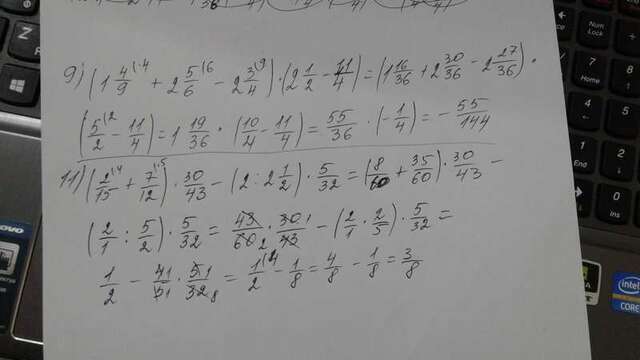 9) (1 4/9 (4 + 2 5/6 (6 - 2 3/4 (9) · (2 1/2 - 11/4) = (1 16/36 + 2 30/36 - 2 27/36) ·
(5/2 (2 - 11/4) = 1 19/36 · (10/4 - 11/4) = 55/36 · (-1/4) = -55/144
11) (2/15 (4 + 7/12 (5) · 30/43 - (2 : 2 1/2) · 5/32 = (8/60 + 35/60) · 30/43 -
(2/1 : 5/2) · 5/32 = 43/60 2 · 30 1/43 - (2/1 · 2/5) · 5/32 =
1/2 - 4 1/5 1 · 5 1/32 8 = 1/2 (4 - 1/8 = 4/8 - 1/8 = 3/8
Num Lock
intel
CORE